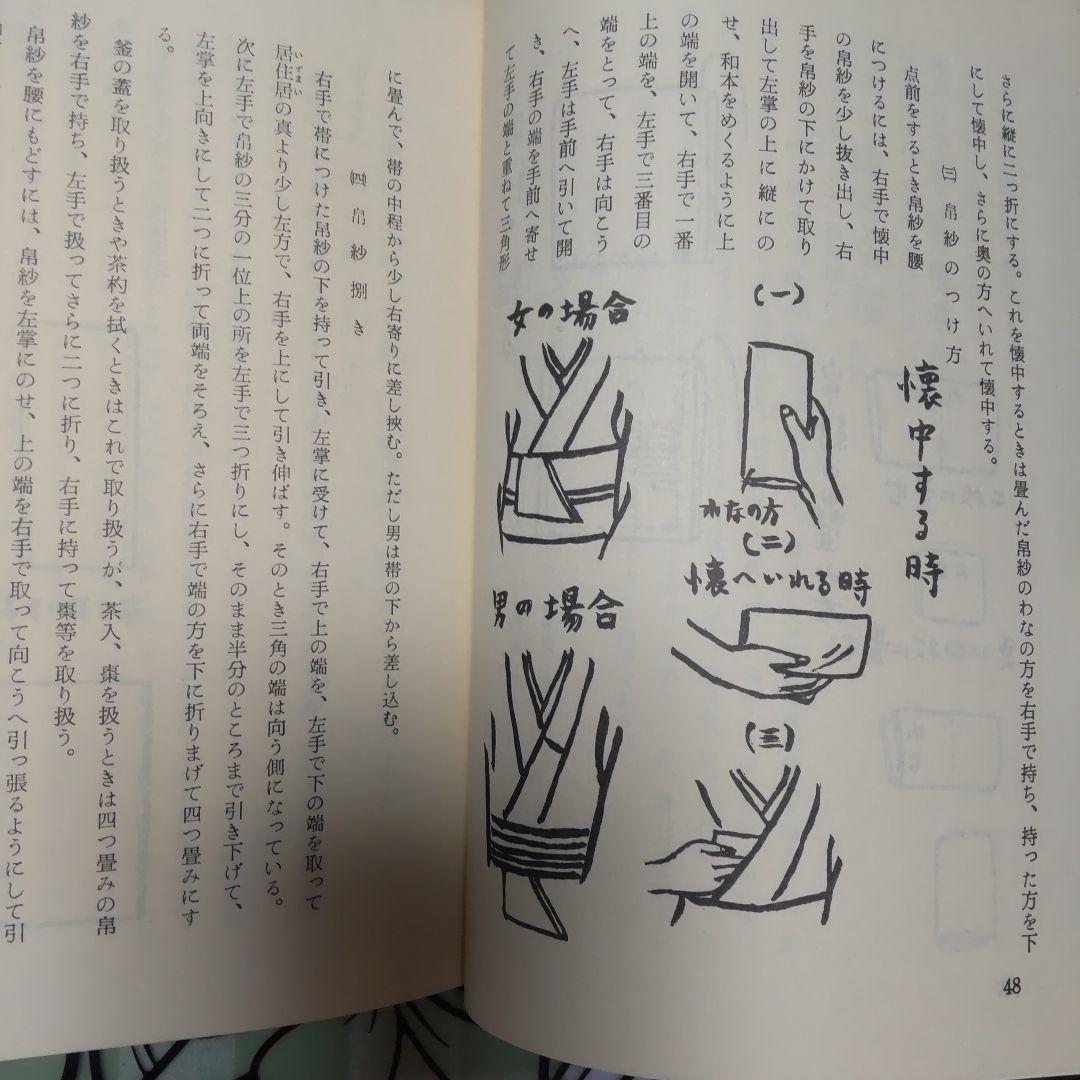 さらに縦に二つ折にする。これを懐中するときは畳んだ帛紗のわなの方を右手で持ち、持った方を下
にして懐中し、さらに奥の方へいれて懐中する。
㈢ 帛紗のつけ方
点前をするとき帛紗を腰
につけるには、右手で懐中
の帛紗を少し抜き出し、右
手を帛紗の下にかけて取り
出して左掌の上に縦にの
せ、和本をめくるように上
の端を開いて、右手で一番
上の端を、左手で三番目の
端をとって、右手は向こう
へ、左手は手前へ引いて開
き、右手の端を手前へ寄せ
て左手の端と重ねて三角形
懐中する時
(一)
わなの方
(二)
懐へいれる時
(三)
女の場合
男の場合
48
に畳んで、帯の中程から少し右寄りに差し挾む。ただし男は帯の下から差し込む。
㈣ 帛紗捌き
右手で帯につけた帛紗の下を持って引き、左掌に受けて、右手で上の端を、左手で下の端を取って
居住居の真より少し左方で、右手を上にして引き伸ばす。そのとき三角の端は向う側になっている。
いずまい
次に左手で帛紗の三分の一位上の所を左手で三つ折りにし、そのまま半分のところまで引き下げて、
左掌を上向きにして二つに折って両端をそろえ、さらに右手で端の方を下に折りまげて四つ畳みにす
る。
釜の蓋を取り扱うときや茶杓を拭くときはこれで取り扱うが、茶入、棗を扱うときは四つ畳みの帛
紗を右手で持ち、左手で扱ってさらに二つに折り、右手に持って棗等を取り扱う。
帛紗を腰にもどすには、帛紗を左掌にのせ、上の端を右手で取って向こうへ引っ張るようにして引